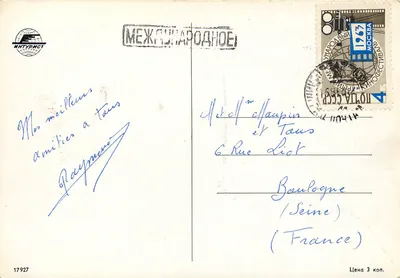 ИНТУРИСТ
МЕЖДУНАРОДНОЕ
1963
МОСКВА
ПОЧТА СССР
4
Mes meilleurs
amitiés à tous
Raymond
M. et Mme Maupin
et Tous
6 Rue Liot
Boulogne
(Seine)
(France)
17927
Цена 3 коп.